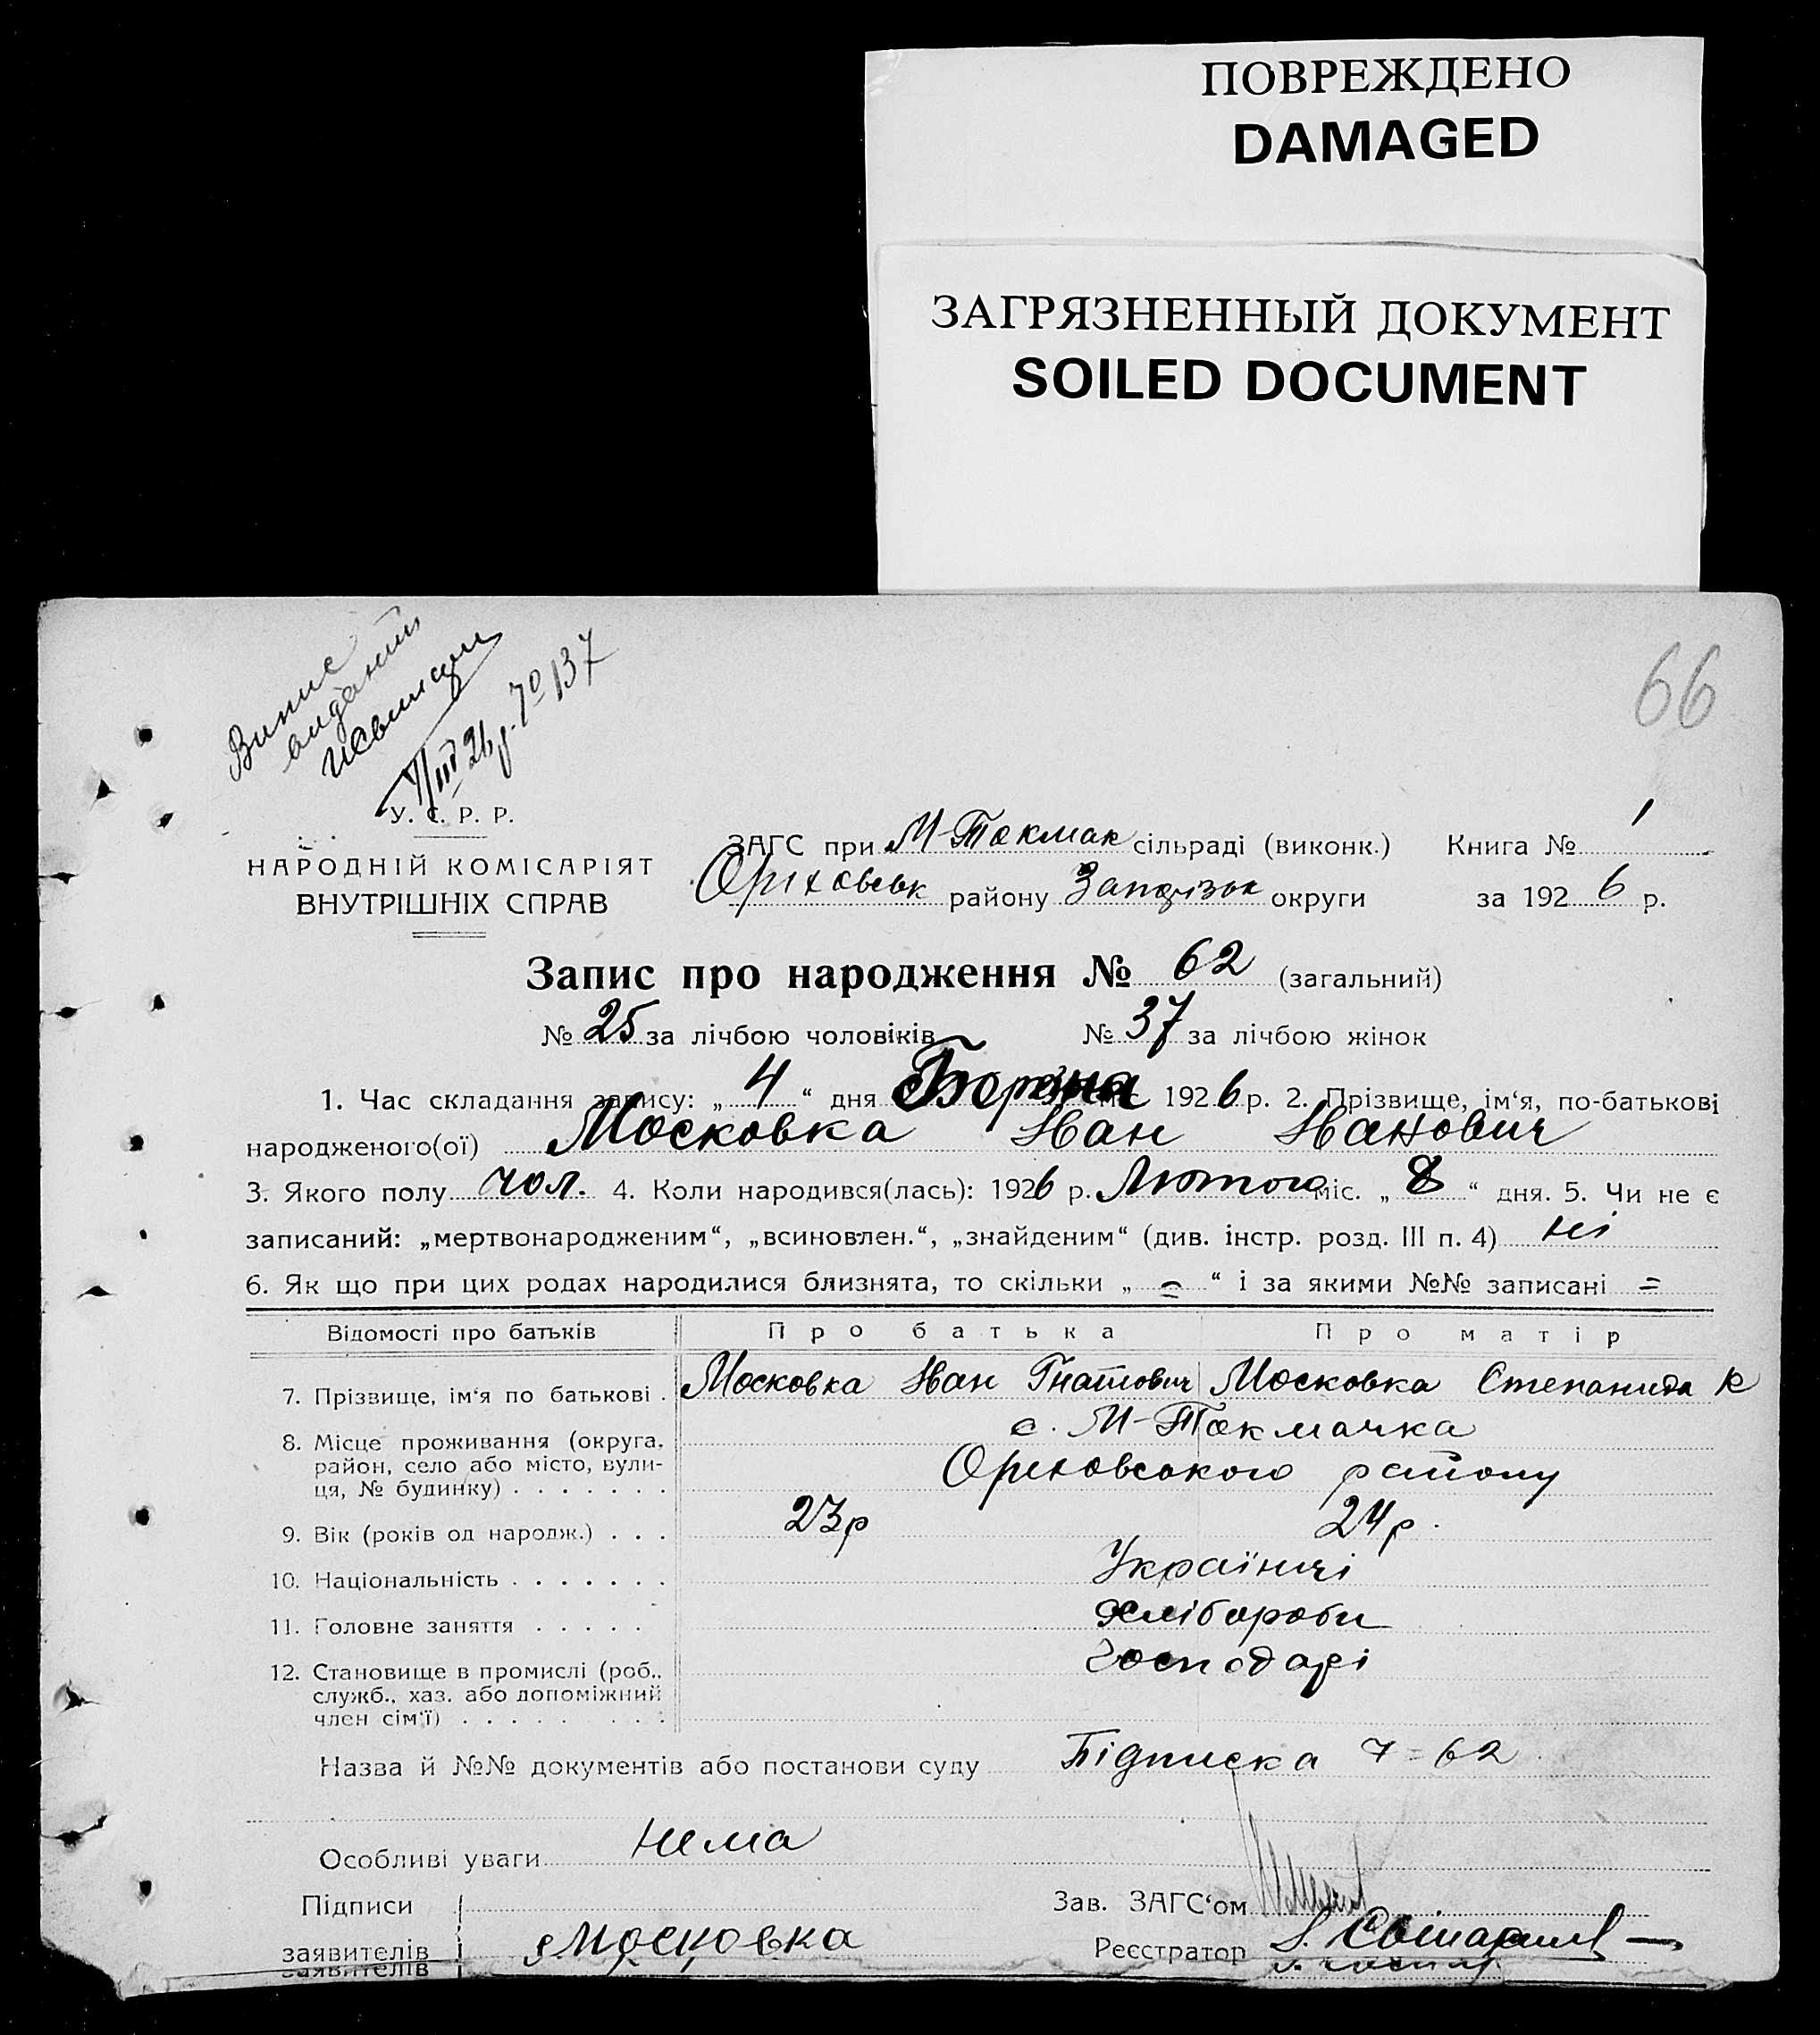 ПОВРЕЖДЕНО
DAMAGED
ЗАГРЯЗНЕННЫЙ ДОКУМЕНТ
SOILED DOCUMENT
66
Випис
виданий
№ 137
У. С. Р. Р.
НАРОДНІЙ КОМІСАРІЯТ
ВНУТРІШНІХ СПРАВ
ЗАГС при М-Токмак сільраді (виконк.) Книга № 1
Оріховськ району Запорізьк округи за 1926 р.
Запис про народження № 62 (загальний)
№ 25 за лічбою чоловіків № 37 за лічбою жінок
1. Час складання запису: „ 4 “ дня Березня міс. 1926 р. 2. Прізвище, ім‘я, по-батькові
народженого(ої) Московка Іван Іванович
3. Якого полу чол. 4. Коли народився(лась): 1926 р. Лютого міс. „ 8 “ дня. 5. Чи не є
записаний: „мертвонародженим“, „всиновлен.“, „знайденим“ (див. інстр. розд. III п. 4) ні
6. Як що при цих родах народилися близнята, то скільки „ = “ і за якими №№ записані =
Відомості про батьків Про батька Про матір
7. Прізвище, ім‘я по батькові . Московка Іван Гнатович Московка Степанида К
8. Місце проживання (округа, с. М-Токмачка
район, село або місто, вули- Оріховського району
ця, № будинку) . . . . . . .
9. Вік (років од народж.) . . . 23р 24р.
10. Національність . . . . . . . Українці
11. Головне заняття . . . . . Хлібороби
12. Становище в промислі (роб., Господарі
служб., хаз. або допоміжний
член сім‘ї) . . . . . . . .
Назва й №№ документів або постанови суду Підписка 7=62
Особливі уваги Нема
Підписи Зав. ЗАГС‘ом
заявителів Московка Реєстратор
заявителів